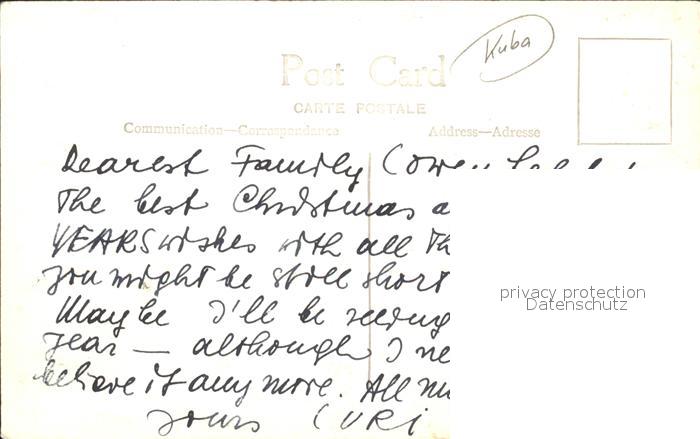 Kuba
Post Card
CARTE POSTALE
Communication—Correspondance
Address—Adresse
Dearest Family
The best Christmas a
YEARS wishes with all Th
you might be still short
Maybe I'll be seeing
year — although I ne
believe it any more. All
yours
privacy protection
Datenschutz